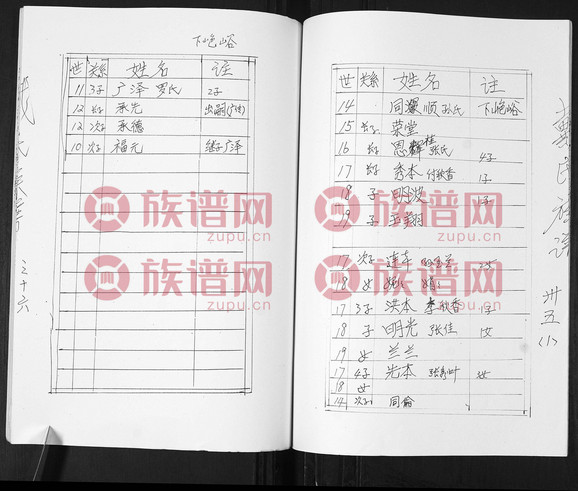 下岜峪
世 关系 姓名 注
11 3子 广泽 罗氏 2子
12 长子 承先 出嗣(广法)
12 次子 承德
10 次子 福元 继子广泽
之十六
世 关系 姓名 注
14 同 顺 孙氏 下岜峪
15 长子 荣堂
16 长子 恩辉 桂 张氏 4子
17 长子 秀本 付秋香 1子
18 子 明波
19 子
17 次子 连本
18 女
17 3子 洪本 李秋香 1子
18 子 明光 张佳 1女
19 女 兰兰
17 4子 光本 女
18 女
14 次子 同俞
氏族谱
卅五(1)
族谱网
zupu.cn
族谱网
zupu.cn
族谱网
zupu.cn
族谱网
zupu.cn